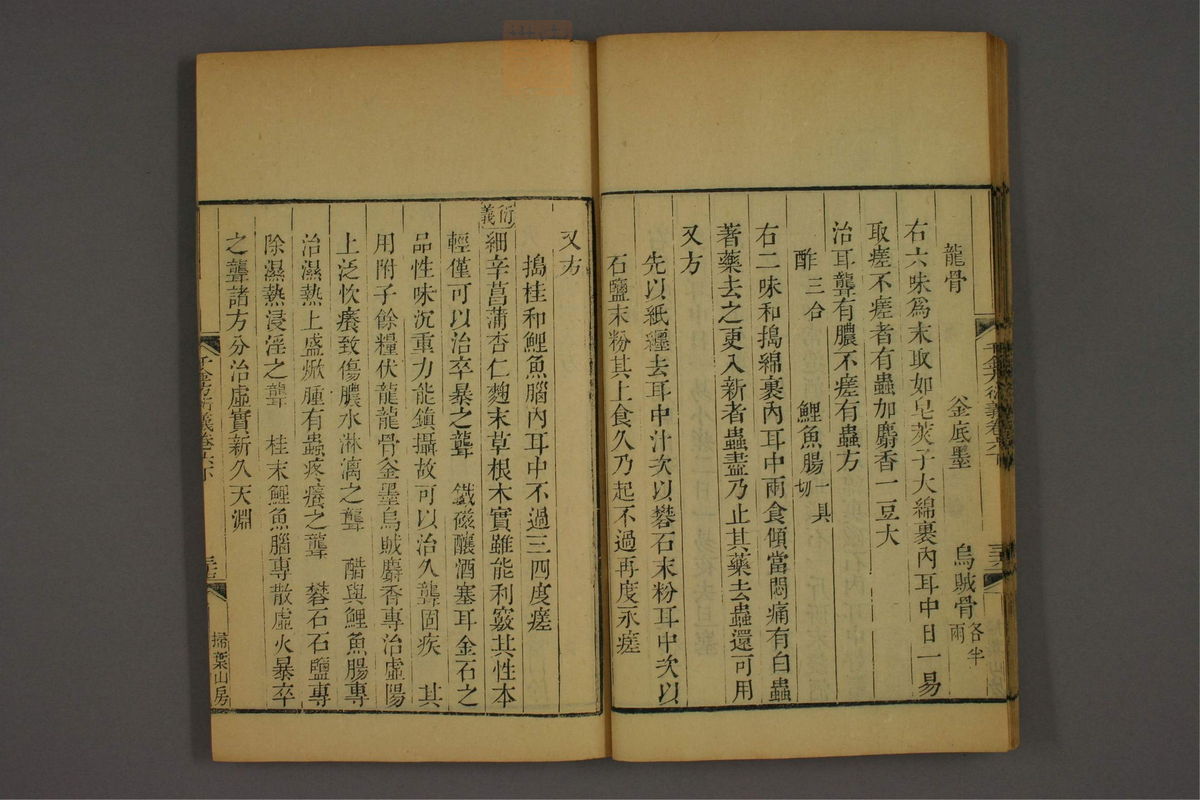 龍骨　釜底墨　烏賊骨各半兩
右六味爲末取如皂莢子大綿裹內耳中日一易
取瘥不瘥者有蟲加麝香一豆大
治耳聾有膿不瘥有蟲方
酢三合　鯉魚腸一具切
右二味和搗綿裹內耳中兩食傾當悶痛有白蟲
著藥去之更入新者蟲盡乃止其藥去蟲還可用
又方
先以紙纏去耳中汁次以礬石末粉耳中次以
石鹽末粉其上食久乃起不過再度永瘥
又方
搗桂和鯉魚腦內耳中不過三四度瘥
衍義細辛菖蒲杏仁麴末草根木實雖能利竅其性本
輕僅可以治卒暴之聾　鐵磁釀酒塞耳金石之
品性味沉重力能鎮攝故可以治久聾固疾　其
用附子餘糧伏龍龍骨釜墨烏賊麝香專治虛陽
上泛忺癢致傷膿水淋漓之聾　醋與鯉魚腸專
治濕熱上盛焮腫有蟲疼癢之聾　礬石石鹽專
除濕熱浸淫之聾　桂末鯉魚腦專散虛火暴卒
之聾諸方分治虛實新久天淵
千金方衍義卷六下
掃葉山房